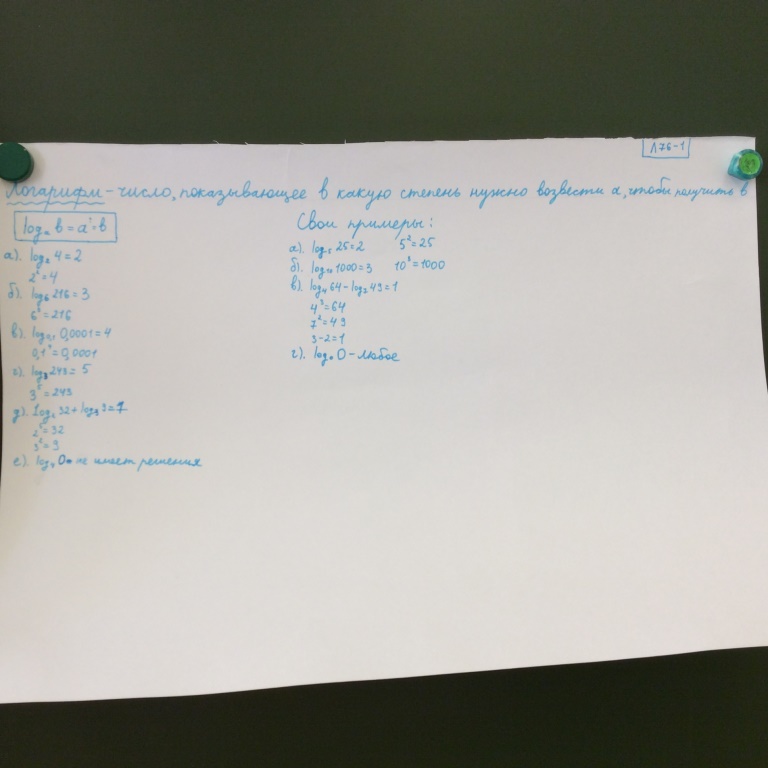 Л76-1
Логарифм - число, показывающее в какую степень нужно возвести а, чтобы получить в
logₐ b = aˣ=b
а). log₂ 4 = 2
2² = 4
б). log₆ 216 = 3
6³ = 216
в). log₀,₁ 0,0001 = 4
0,1⁴ = 0,0001
г). log₃ 243 = 5
3⁵ = 243
д). log₂ 32 + log₃ 9 = 7
2⁵ = 32
3² = 9
е). log₄ 0 - не имеет решения
Свои примеры:
а). log₅ 25 = 2 5² = 25
б). log₁₀ 1000 = 3 10³ = 1000
в). log₄ 64 - log₇ 49 = 1
4³ = 64
7² = 49
3-2 = 1
г). log₀ 0 - любое